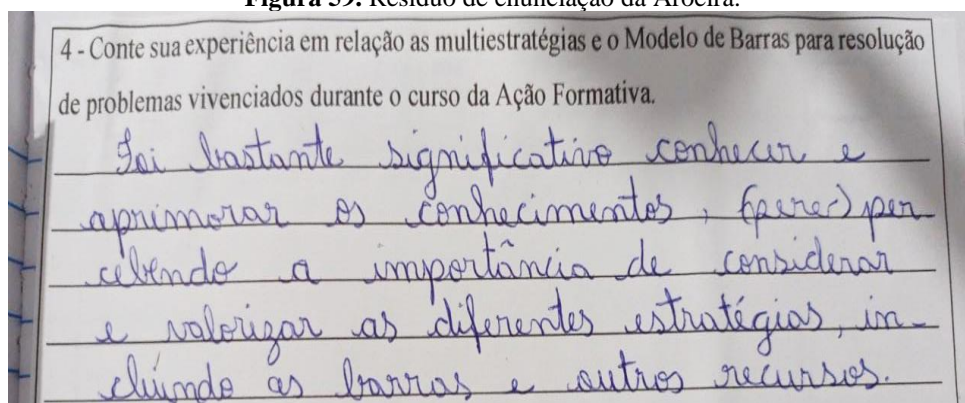 Figura 39. Resíduo de enunciação da Aroeira.
4 - Conte sua experiência em relação as multiestratégias e o Modelo de Barras para resolução
de problemas vivenciados durante o curso da Ação Formativa.
Foi bastante significativo conhecer e
aprimorar os conhecimentos, (perce) per
cebendo a importância de considerar
e valorizar as diferentes estratégias, in-
cluindo as barras e outros recursos.